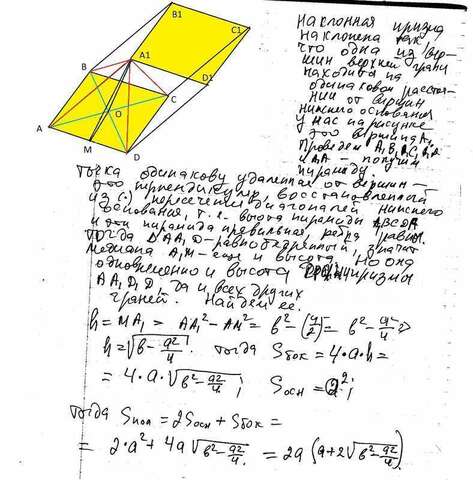 B1
C1
A1
B
D1
C
O
A
M
D
наклонная призма
наклонена так
что одна из вер-
шин верхней грани
находится на
одинаковом расстоя-
нии от вершин
нижнего основания
у нас на рисунке
это вершина A₁
Проведем A₁B, A₁C, A₁D
и A₁A — получим
пирамиду.
Точка одинаково удаленная от вершин —
это перпендикуляр, восстановленный
из (·) пересечения диагоналей нижнего
основания, т.е. высота пирамиды ABCDA
и пирамида правильная, ребра равны.
Тогда ΔAA₁D - равнобедренный, значит
медиана A₁M - еще и высота. Но она
одновременно и высота призмы
AA₁D₁D, да и всех других
граней. Найдем ее.
h = MA₁ = AA₁² - AM² = b² - (a/2)² = b² - a²/4 ⇒
h = √(b - a²/4). Тогда Sбок = 4·a·h =
= 4·a·√(b² - a²/4); Sосн = a²;
Тогда Sпол = 2Sосн + Sбок =
= 2·a² + 4a√(b² - a²/4) = 2a(a + 2√(b² - a²/4))